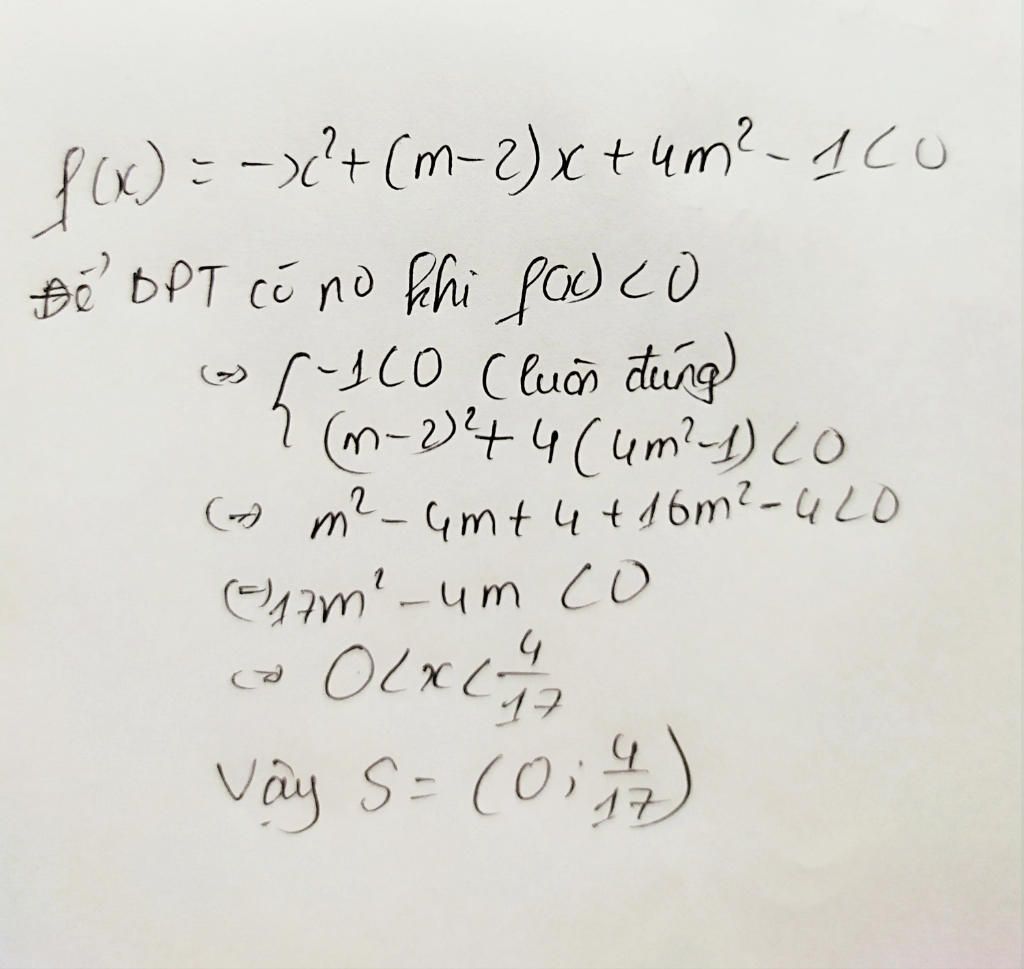 f(x) = -x² + (m-2)x + 4m² - 1 < 0
Để BPT có no khi f(x) < 0
<=> { -1 < 0 (luôn đúng)
(m-2)² + 4(4m²-1) < 0
<=> m² - 4m + 4 + 16m² - 4 < 0
<=> 17m² - 4m < 0
<=> 0 < x < 4/17
Vậy S = (0; 4/17)